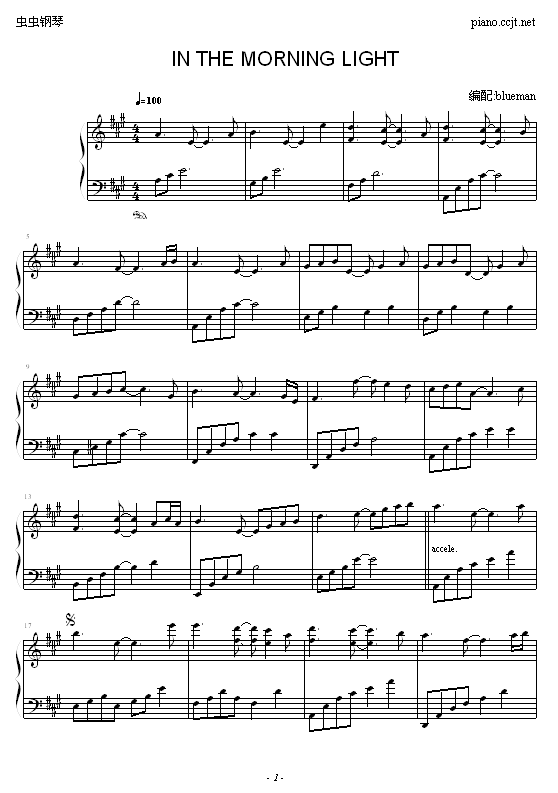 虫虫钢琴
piano.ccjt.net
IN THE MORNING LIGHT
♩=100
编配:blueman
5
9
13
accele.
17
- 1 -